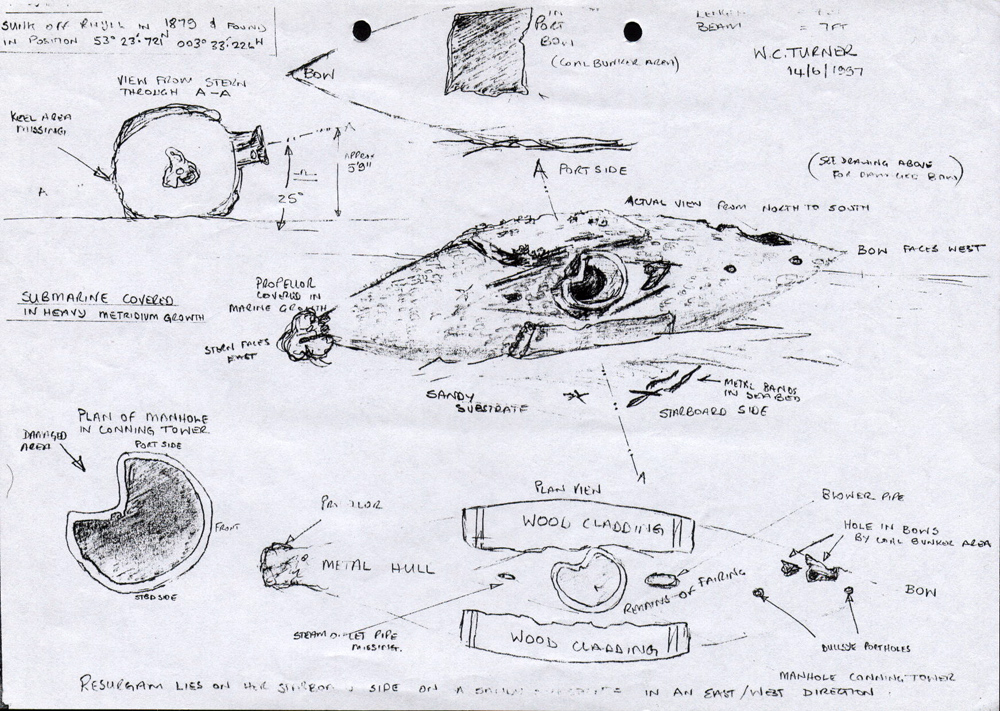 SUNK OFF RHYL IN 1879 & FOUND
IN POSITION 53° 23'.721N 003° 33'.224W
IN
PORT
BOW
(COAL BUNKER AREA)
LENGTH =
BEAM = 7FT
W.C. TURNER
14/6/1997
BOW
VIEW FROM STERN
THROUGH A-A
KEEL AREA
MISSING
A
A
APPROX
5'9"
25°
A PORT SIDE
(SEE DRAWING ABOVE
FOR DAMAGED BOW)
ACTUAL VIEW FROM NORTH TO SOUTH
BOW FACES WEST
SUBMARINE COVERED
IN HEAVY METRIDIUM GROWTH
PROPELLOR
COVERED IN
MARINE GROWTH
STERN FACES
EAST
SANDY
SUBSTRATE
METAL BANDS
IN SEABED
STARBOARD SIDE
A
PLAN OF MANHOLE
IN CONNING TOWER
DAMAGED
AREA
PORT SIDE
FRONT
STBD SIDE
PLAN VIEW
PROPELLOR
METAL HULL
WOOD CLADDING
BLOWER PIPE
HOLE IN BOWS
BY COAL BUNKER AREA
REMAINS OF FAIRING
BOW
STEAM OUTLET PIPE
MISSING.
WOOD CLADDING
BULLSYE PORTHOLES
MANHOLE CONNING TOWER
RESURGAM LIES ON HER STARBOARD SIDE ON A SANDY SUBSTRATE IN AN EAST/WEST DIRECTION.